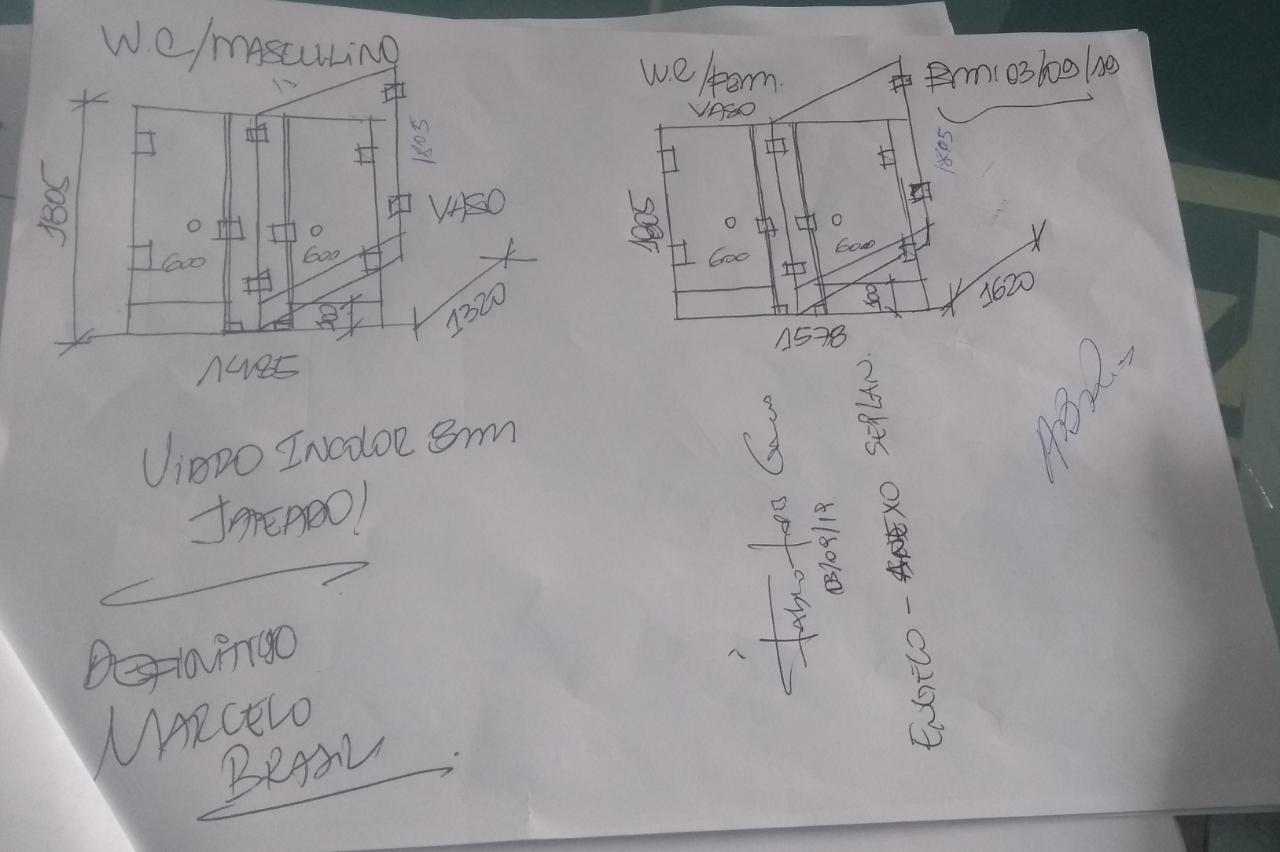 W.C/MASCULINO
1805
1805
VASO
600
600
100
1320
1485
W.C/FEM.
VASO
03/09/19
1805
1805
600
600
100
1620
1578
VIDRO INCOLOR 8mm
JATEADO!
DEFINITIVO
MARCELO
BRASIL
03/09/19
ANEXO SEPLAN.